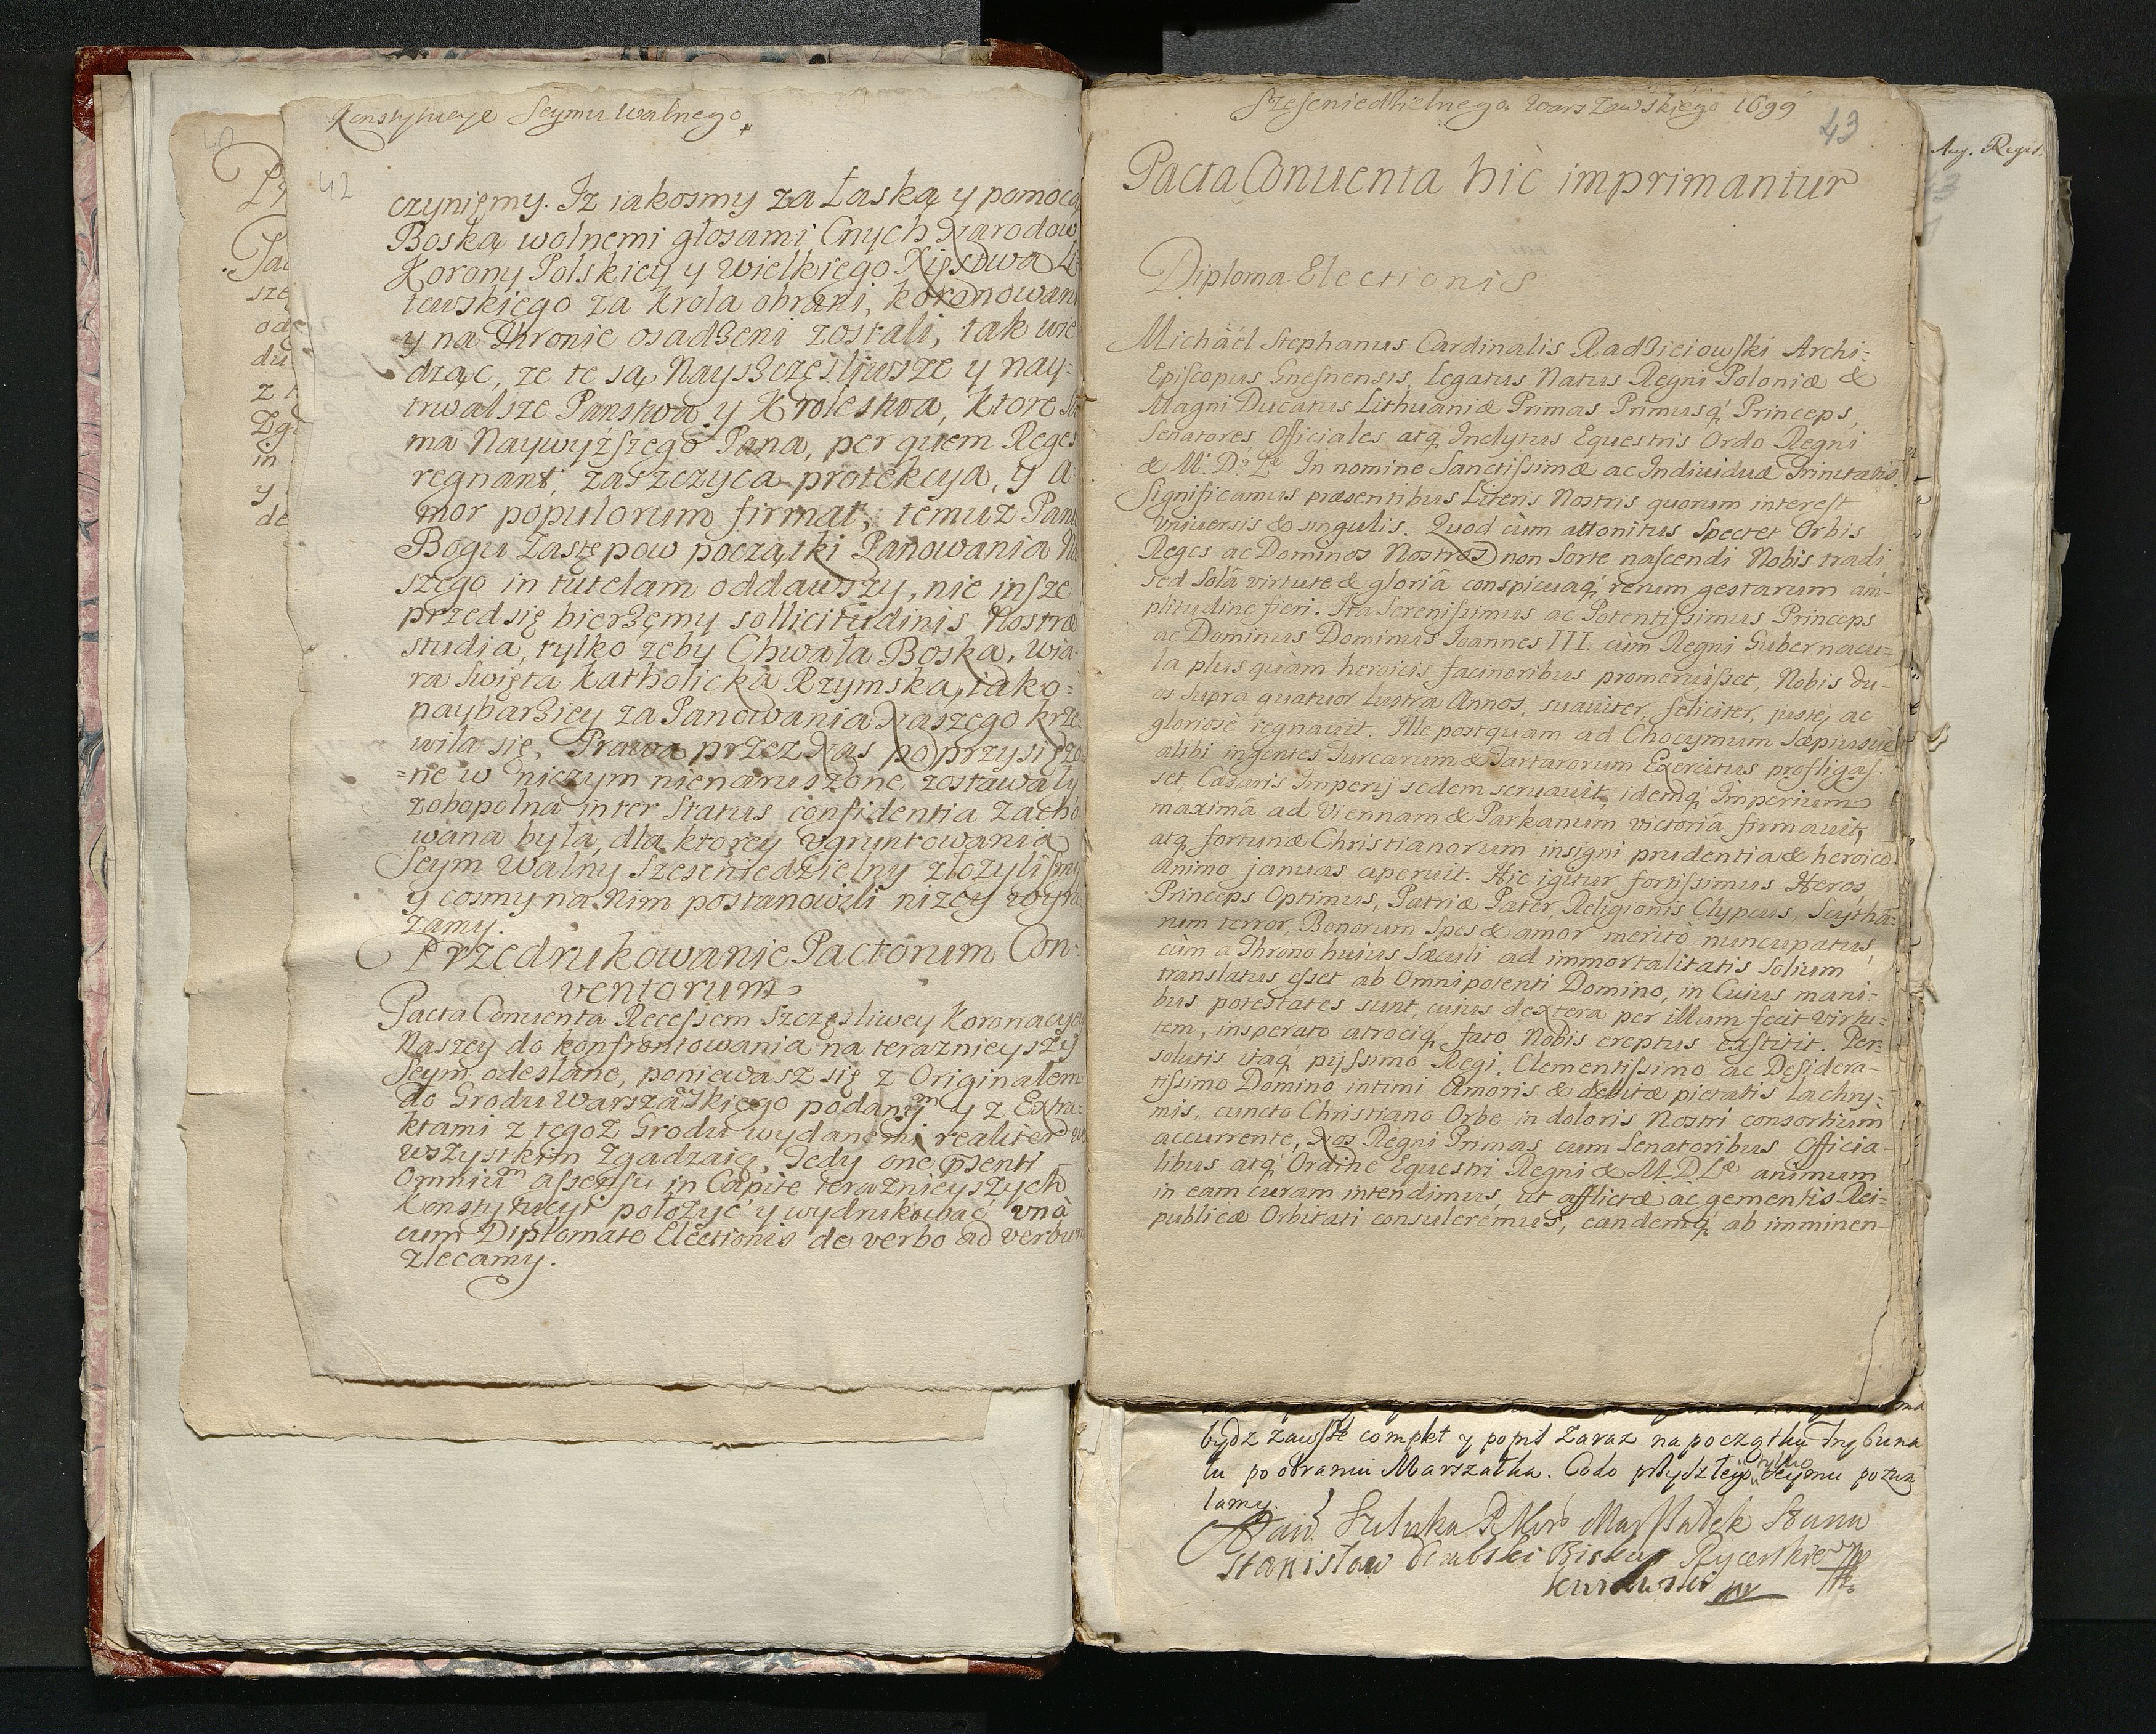 Konstytucye Seymu Walnego
42
czyniemy. Iz iakosmy za Łaską y pomocą
Boską wolnemi głosami Cnych Narodow
Korony Polskiey y Wielkiego Xięstwa Li
tewskiego za Krola obrani, koronowani
y na Thronie osadzeni zostali, tak wie
dząc, ze te są Nayszczęsliwsze y nay=
trwalsze Panstwa y Krolestwa, Ktore
ma Naywyzszego Pana, per quem Reges
regnant, zaszczyca protekcya, y a=
mor populorum firmat, temuz Panu
Bogu Zastępow początki Panowania Na
szego in tutelam oddawszy, nie insze
przed się bierzemy sollicitudinis Nostræ
studia, tylko zeby Chwała Boska, Wia=
ra Swięta Katholicka Rzymska, iako=
naybarziey za Panowania Naszego krze=
wiła się, Prawa przez Nas poprzysięzo=
=ne w niczym nienaruszone zostawały
zobopolna inter Status confidentia zacho
wana była, dla ktorey vgruntowania
Seym Walny Szescniedzielny złozylismy
y cosmy na Nim postanowili nizey wyra
zamy.
Przedrukowanie Pactorum Con=
ventorum
Pacta Conuenta Recessem szczęsliwey Koronacyey
Naszey do konfrontowania na teraznieyszy
Seym odesłane, poniewasz się z Originałem
do Grodu Warszaskiego podanym y z Extra=
ktami z tegoz Grodu wydanemi realiter we
wszystkim zgadzaią, Tedy one psenti
omnium assensu in Capite teraznieyszych
Konstytucyi połozyć y wydrukować vnà
cum Diplomate Electionis de verbo ad verbum
zlecamy.
Szescniedzielnego Warszawskiego 1699
43
Pacta Conuenta hic imprimantur
Diploma Electionis
Michäel Stephanus Cardinalis Radzieiowski Archi=
Episcopus Gnesnensis, Legatus Natus Regni Poloniæ &
Magni Ducatus Lithuaniæ Primas Primusq́ Princeps,
Senatores, Officiales atq́ Inclytus Equestris Ordo Regni
& M. D. Læ In nomine Sanctissimæ ac Indiuiduæ Trinitatis.
Significamus præsentibus Literis Nostris quorum interest
vniuersis & singulis. Quod cùm attonitus spectet Orbis
Reges ac Dominos Nostros non sorte nascendi Nobis tradi,
sed solâ virtute & gloriâ conspicuaq́ rerum gestarum am=
plitudine fieri. Ita Serenissimus ac Potentissimus Princeps
ac Dominus Dominus Ioannes III. cùm Regni Gubernacu=
la plus quàm heroicis facinoribus promeruisset, Nobis du=
os supra quatuor lustra Annos, suauiter, feliciter, justè, ac
gloriosè regnauit. Ille postquam ad Chocymum sæpiusue
alibi ingentes Turcarum & Tartarorum Exercitus profligas=
set, Cæsaris Imperij sedem seruauit, idemq́ Imperium
maximâ ad Viennam & Parkanum victoriâ firmauit,
atq́ fortunæ Christianorum insigni prudentia & heroico
Animo januas aperuit. Hic igitur fortissimus Heros,
Princeps Optimus, Patriæ Pater, Religionis Clypeus, Scytha=
rum terror, Bonorum Spes & amor meritò nuncupatus,
cùm a Throno huius Sæculi ad immortalitatis Solium
translatus esset ab Omnipotenti Domino, in Cuius mani=
bus potestates sunt, cuius dextera per illum fecit virtu=
tem, insperato atrociq́ fato Nobis ereptus exstitit. Per=
solutis itaq́ pijssimo Regi, Clementissimo ac Desidera=
tissimo Domino intimi Amoris & debitæ pietatis lachry=
mis, cuncto Christiano Orbe in doloris Nostri consortium
accurrente, Nos Regni Primas cum Senatoribus Officia=
libus atq́ Ordine Equestri Regni & M. D. Læ animum
in eam curam intendimus, ut afflictæ ac gementis Rei=
publicæ Orbitati consuleremus, eandemq́ ab imminen=
Aug. Regis.
bydz zawsze complet y popis zaraz na początku Trybuna
łu po obraniu Marszałka. Co do przyszłego tylko Seymu pozwa
lamy.
Marszałek
Stanisław Dembski Biskup Rycerskiego